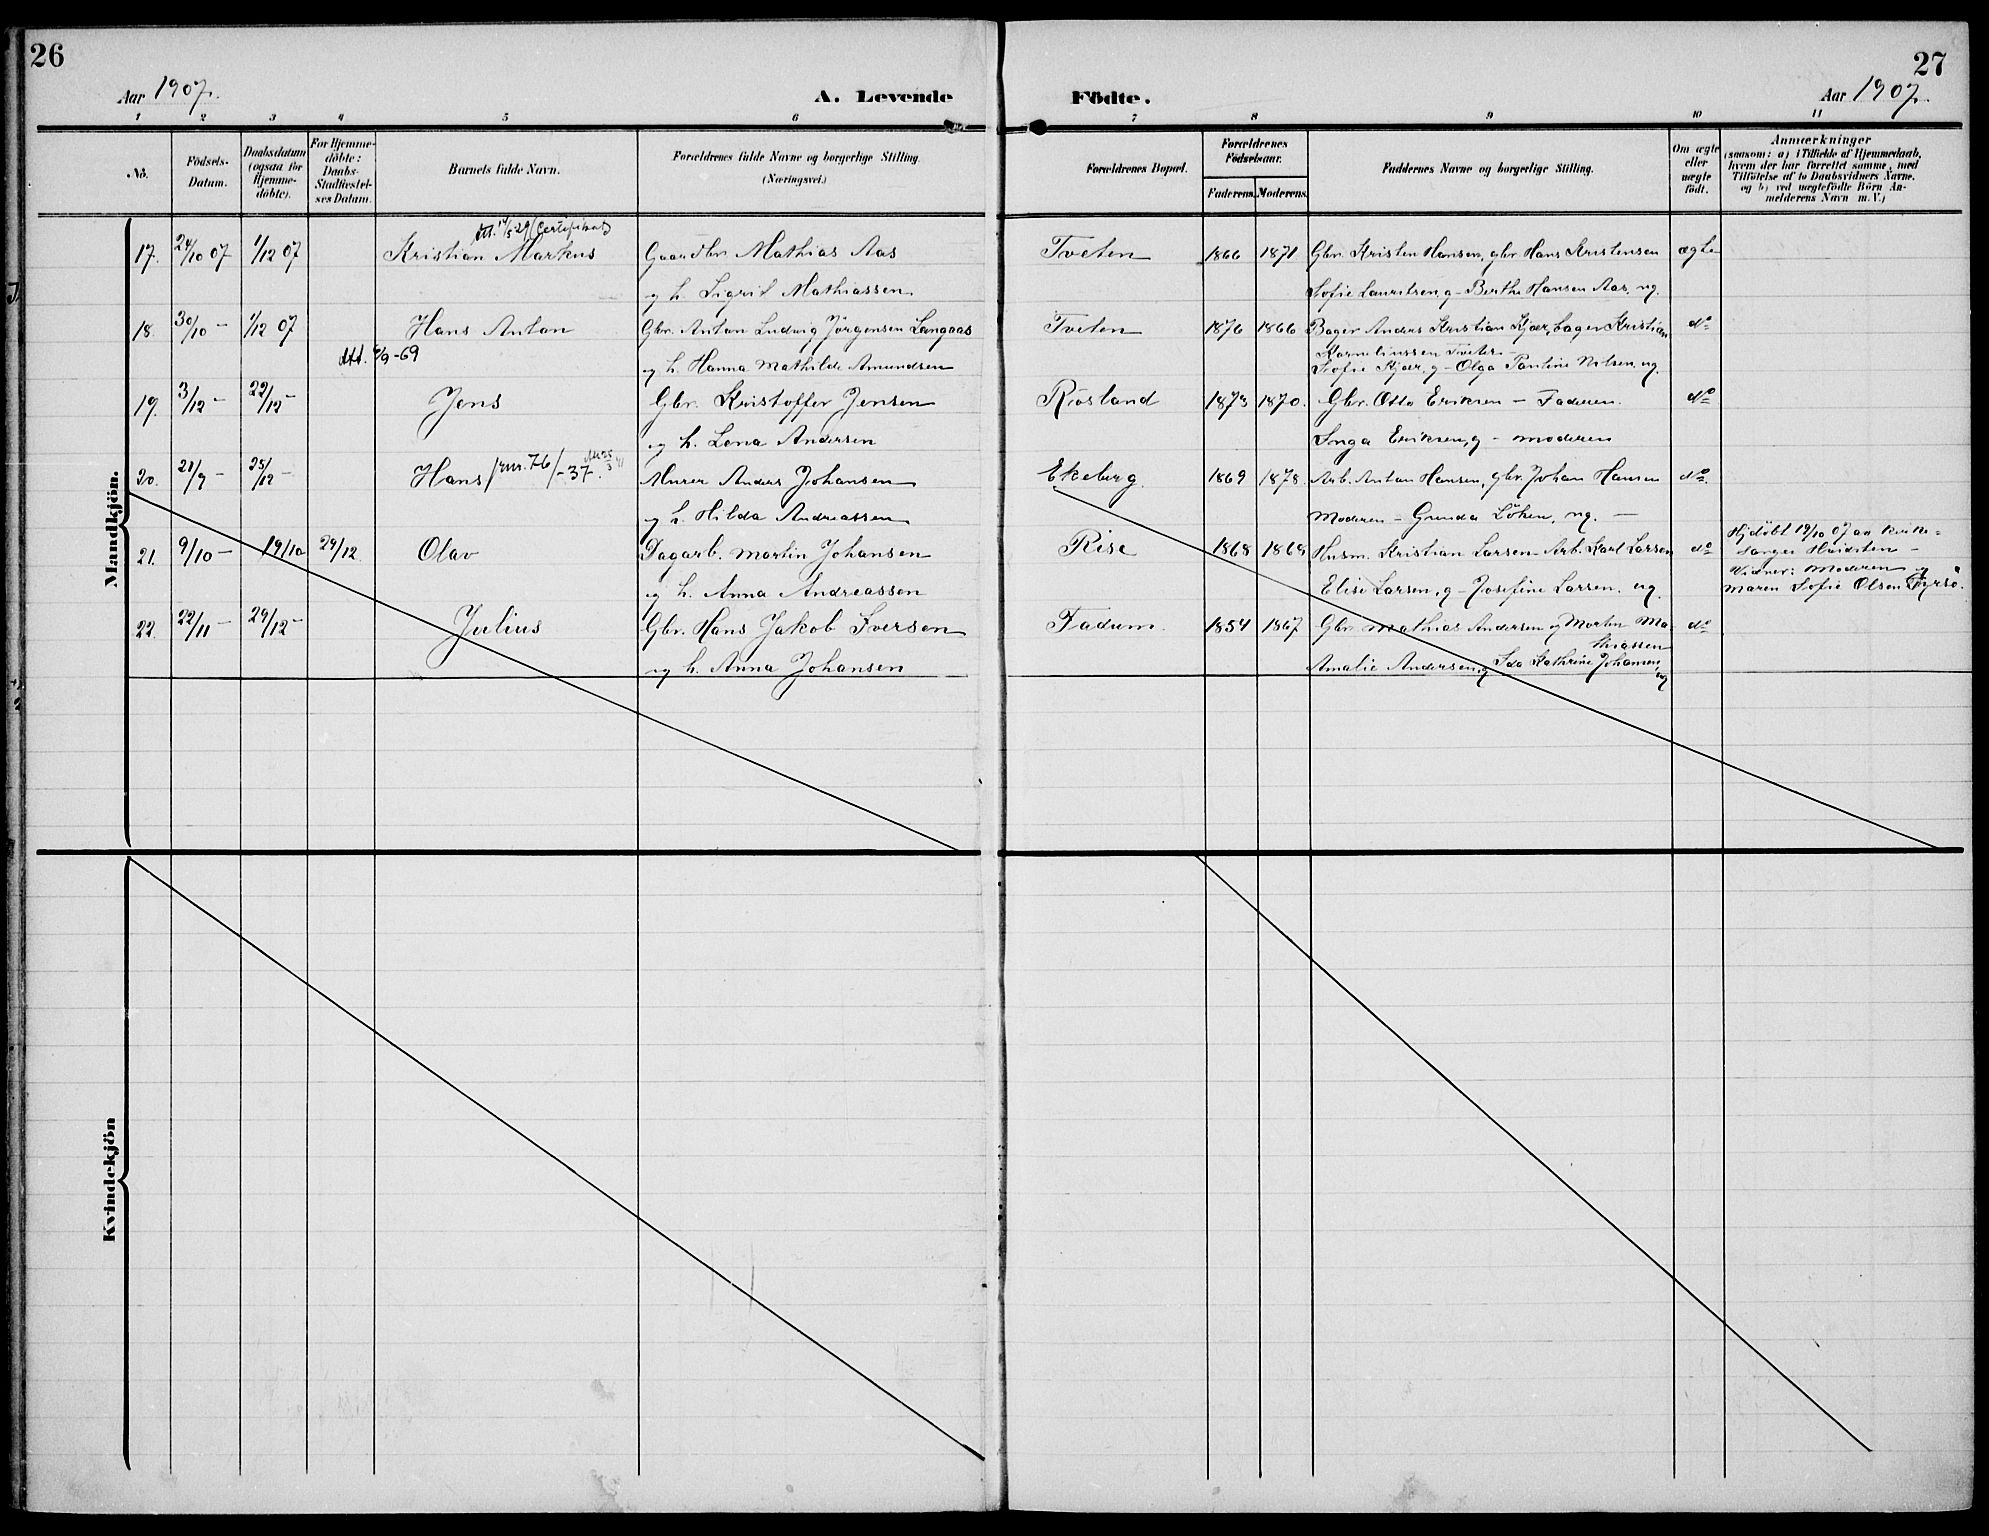 26
27
Aar 1907.
A. Levende
Födte.
Aar 1907.
1 2 3 4 5 6 7 8 9 10 11
No.
Födsels-Datum.
Daabsdatum (ogsaa for Hjemme-döbte).
For Hjemme-döbte: Daabs-Stadfæstel-ses Datum.
Barnets fulde Navn.
Forældrenes fulde Navne og borgerlige Stilling.
(Næringsvei.)
Forældrenes Bopæl.
Forældrenes Födselsaar.
Faderens. Moderens.
Faddernes Navne og borgerlige Stilling.
Om ægte eller uægte födt.
Anmærkninger
(saasom: a) i Tilfælde af Hjemmedaab, hvem der har forrettet samme, med Tilföielse af to Daabsvidners Navne, og b) ved uægtefödte Börn An-melderens Navn m. V.)
Mandkjön.
Att. 14/5 29 (Certifikat)
17. 24/10 07 1/12 07 Kristian Markus Gaardbr. Mathias Aas Tveten 1866 1871 Gbr. Kristen Hansen, gbr. Hans Kristensen ægte
og h. Sigrid Mathiassen Sofie Lauritsen, g - Berthe Hansen Aas, ug.
18. 30/10 - 1/12 07 Hans Anton Gbr. Anton Ludvig Jørgensen Langaas Tveten 1876 1866 Bager Anders Kristian Kjær, bager Kristian do
Att. 9/9-69 Korneliussen Tveter
og h. Hanna Mathilde Amundsen Sofie Kjær, g - Olga Pauline Nilsen, ug.
19. 3/12 - 22/12 - Jens Gbr. Kristoffer Jensen Røsland 1873 1870. Gbr. Otto Eriksen - Faderen. do
og h. Lena Andersen Inga Eriksen, g - moderen
20. 21/9 - 25/12 - Hans /jnr. 76/-37. Murer Anders Johansen Ekeberg 1869 1878. Arb. Anton Hansen, gbr. Johan Hansen do
og h. Hilda Andreassen Moderen - Gunda Löken, ug. -
21. 9/10 - 19/10 29/12 Olav Dagarb. Martin Johansen Rise 1868 1868 Husm. Kristian Larsen - Arb. Karl Larsen do Hjdöbt 19/10 07 av kirke-
sanger
og h. Anna Andreassen Elise Larsen, g - Josefine Larsen. ug. Vidner: moderen og
maren Sofie Olsen Fyrsö.
22. 22/11 - 29/12 - Julius Gbr. Hans Jakob Iversen Fadum. 1854 1867 Gbr. Mathias Andersen og Morten Ma- do
thiassen
og h. Anna Johansen Amalie Andersen, g Ida Kathrine Johansen, ug
Kvindekjön